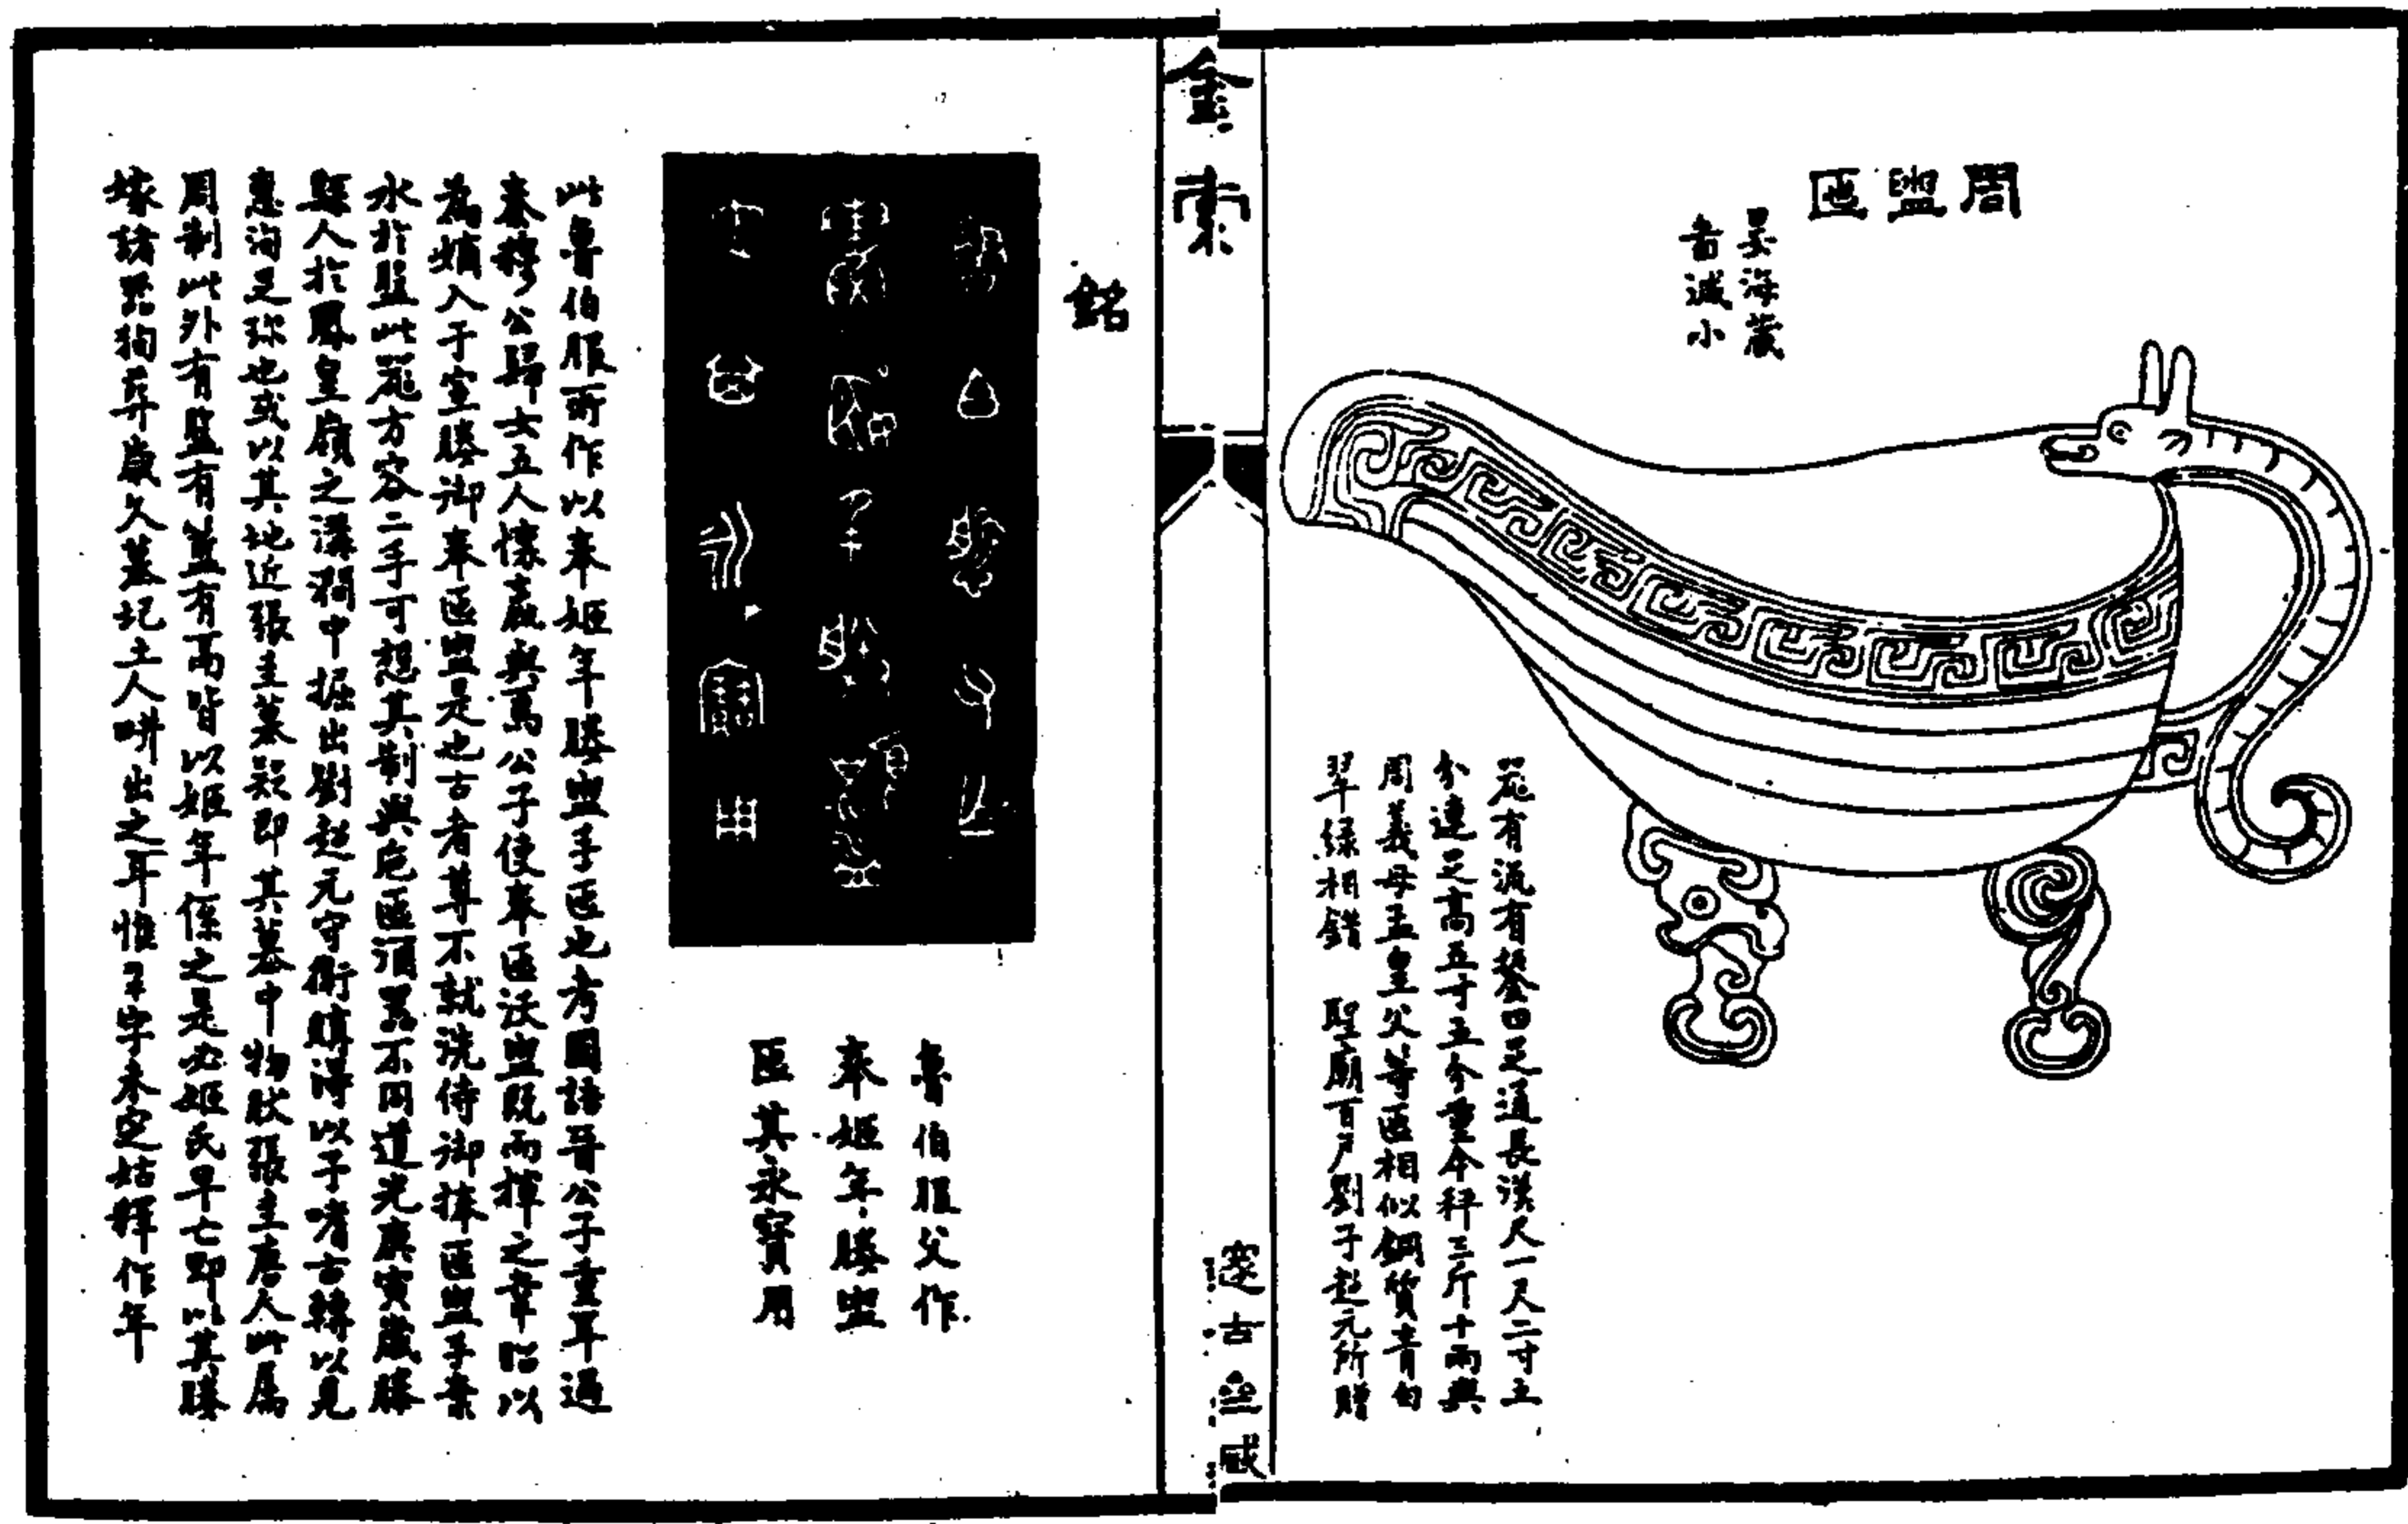 周盥匜
晏海藏
器有流有鋬四足通長漢尺一尺二寸五
分連足高五寸五分重今秤三斤十兩與
周義母孟皇父等匜相似銅質青匀
翠綠相錯 聖廟百戶劉子超元所贈
金索
邃古亝臧
銘
魯伯服父作
奉姬年媵盥
匜其永寶用
此魯伯服所作以奉姬年媵盥手匜也考國語晉公子重耳過
秦穆公歸女五人懷嬴與焉公子使奉匜沃盥既而揮之韋昭以
為婚入于室媵御奉匜盥是也古者尊不就洗侍御捧匜盥手棄
水於盤此器方容二手可想其制與卮匜酒器不同道光庚寅歲滕
縣人於鳳皇嶺之溝澗中掘出劉超元守衛購得以予嗜古轉以見
惠洵足珍也或以其地近張圭墓疑即其墓中物狀張圭唐人此屬
周制此外有盤有簠有鬲皆以姬年係之是必姬氏早亡即以其媵
嫁諸器殉葬歲久墓圮土人畊出之耳惟年字未定姑釋作年